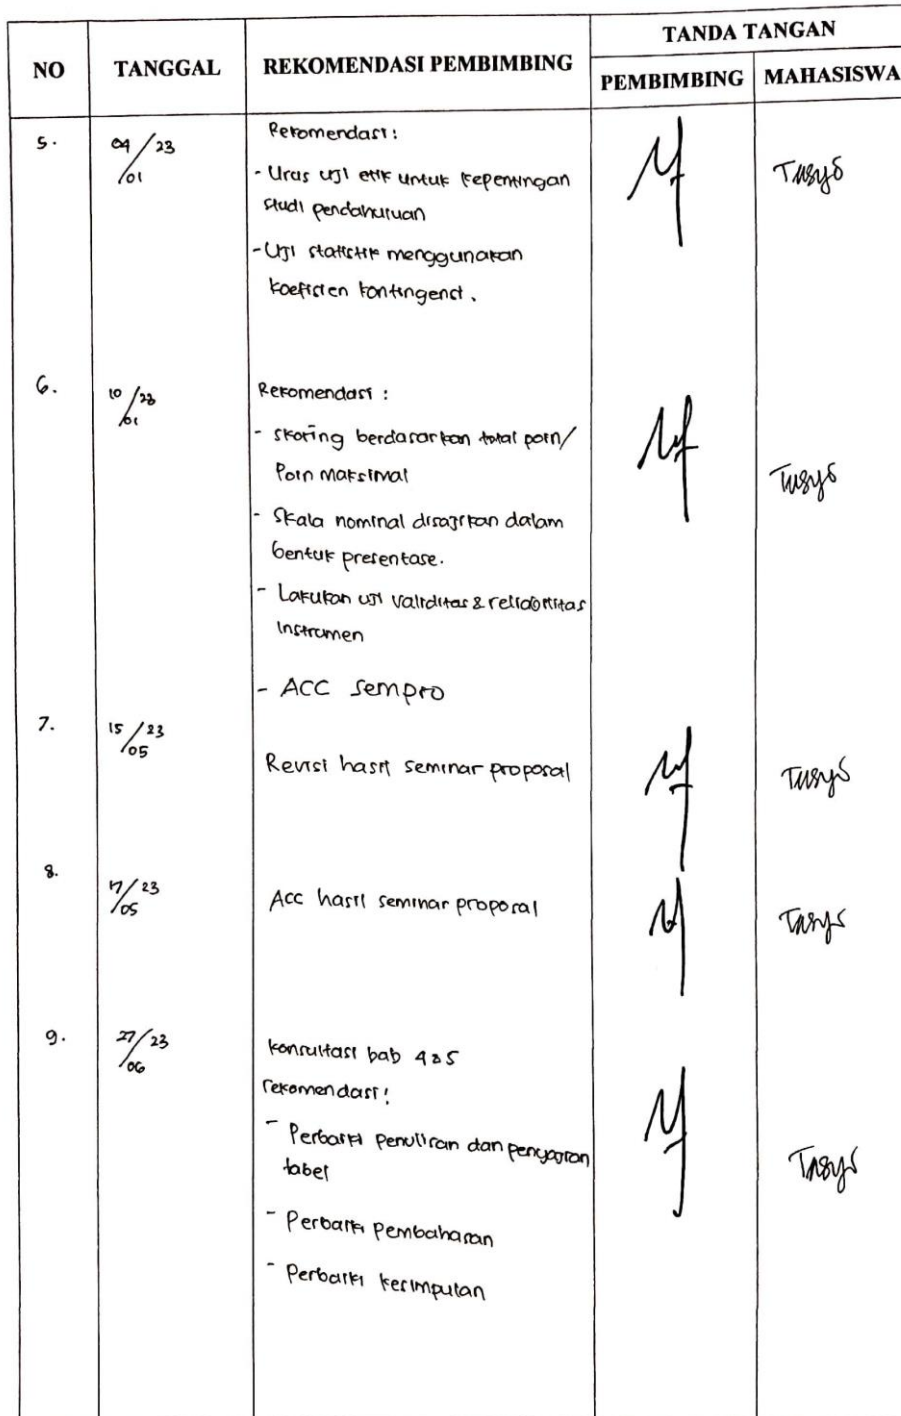 TANDA TANGAN
NO TANGGAL REKOMENDASI PEMBIMBING PEMBIMBING MAHASISWA
5. 04/23 /01 Rekomendasi: Tasya
- Urus uji etik untuk kepentingan
studi pendahuluan
- Uji statistik menggunakan
koefisien kontingensi.
6. 10/23 /01 Rekomendasi :
- skoring berdasarkan total poin/
Poin maksimal Tasya
- Skala nominal disajikan dalam
bentuk presentase.
- Lakukan uji validitas & reliabilitas
instrumen
- ACC sempro
7. 15/23 /05 Revisi hasil seminar proposal Tasya
8. 17/23 /05 Acc hasil seminar proposal Tasya
9. 27/23 /06 konsultasi bab 4&5
rekomendasi!
- Perbaiki penulisan dan penyajian
tabel Tasya
- Perbaiki pembahasan
- Perbaiki kesimpulan